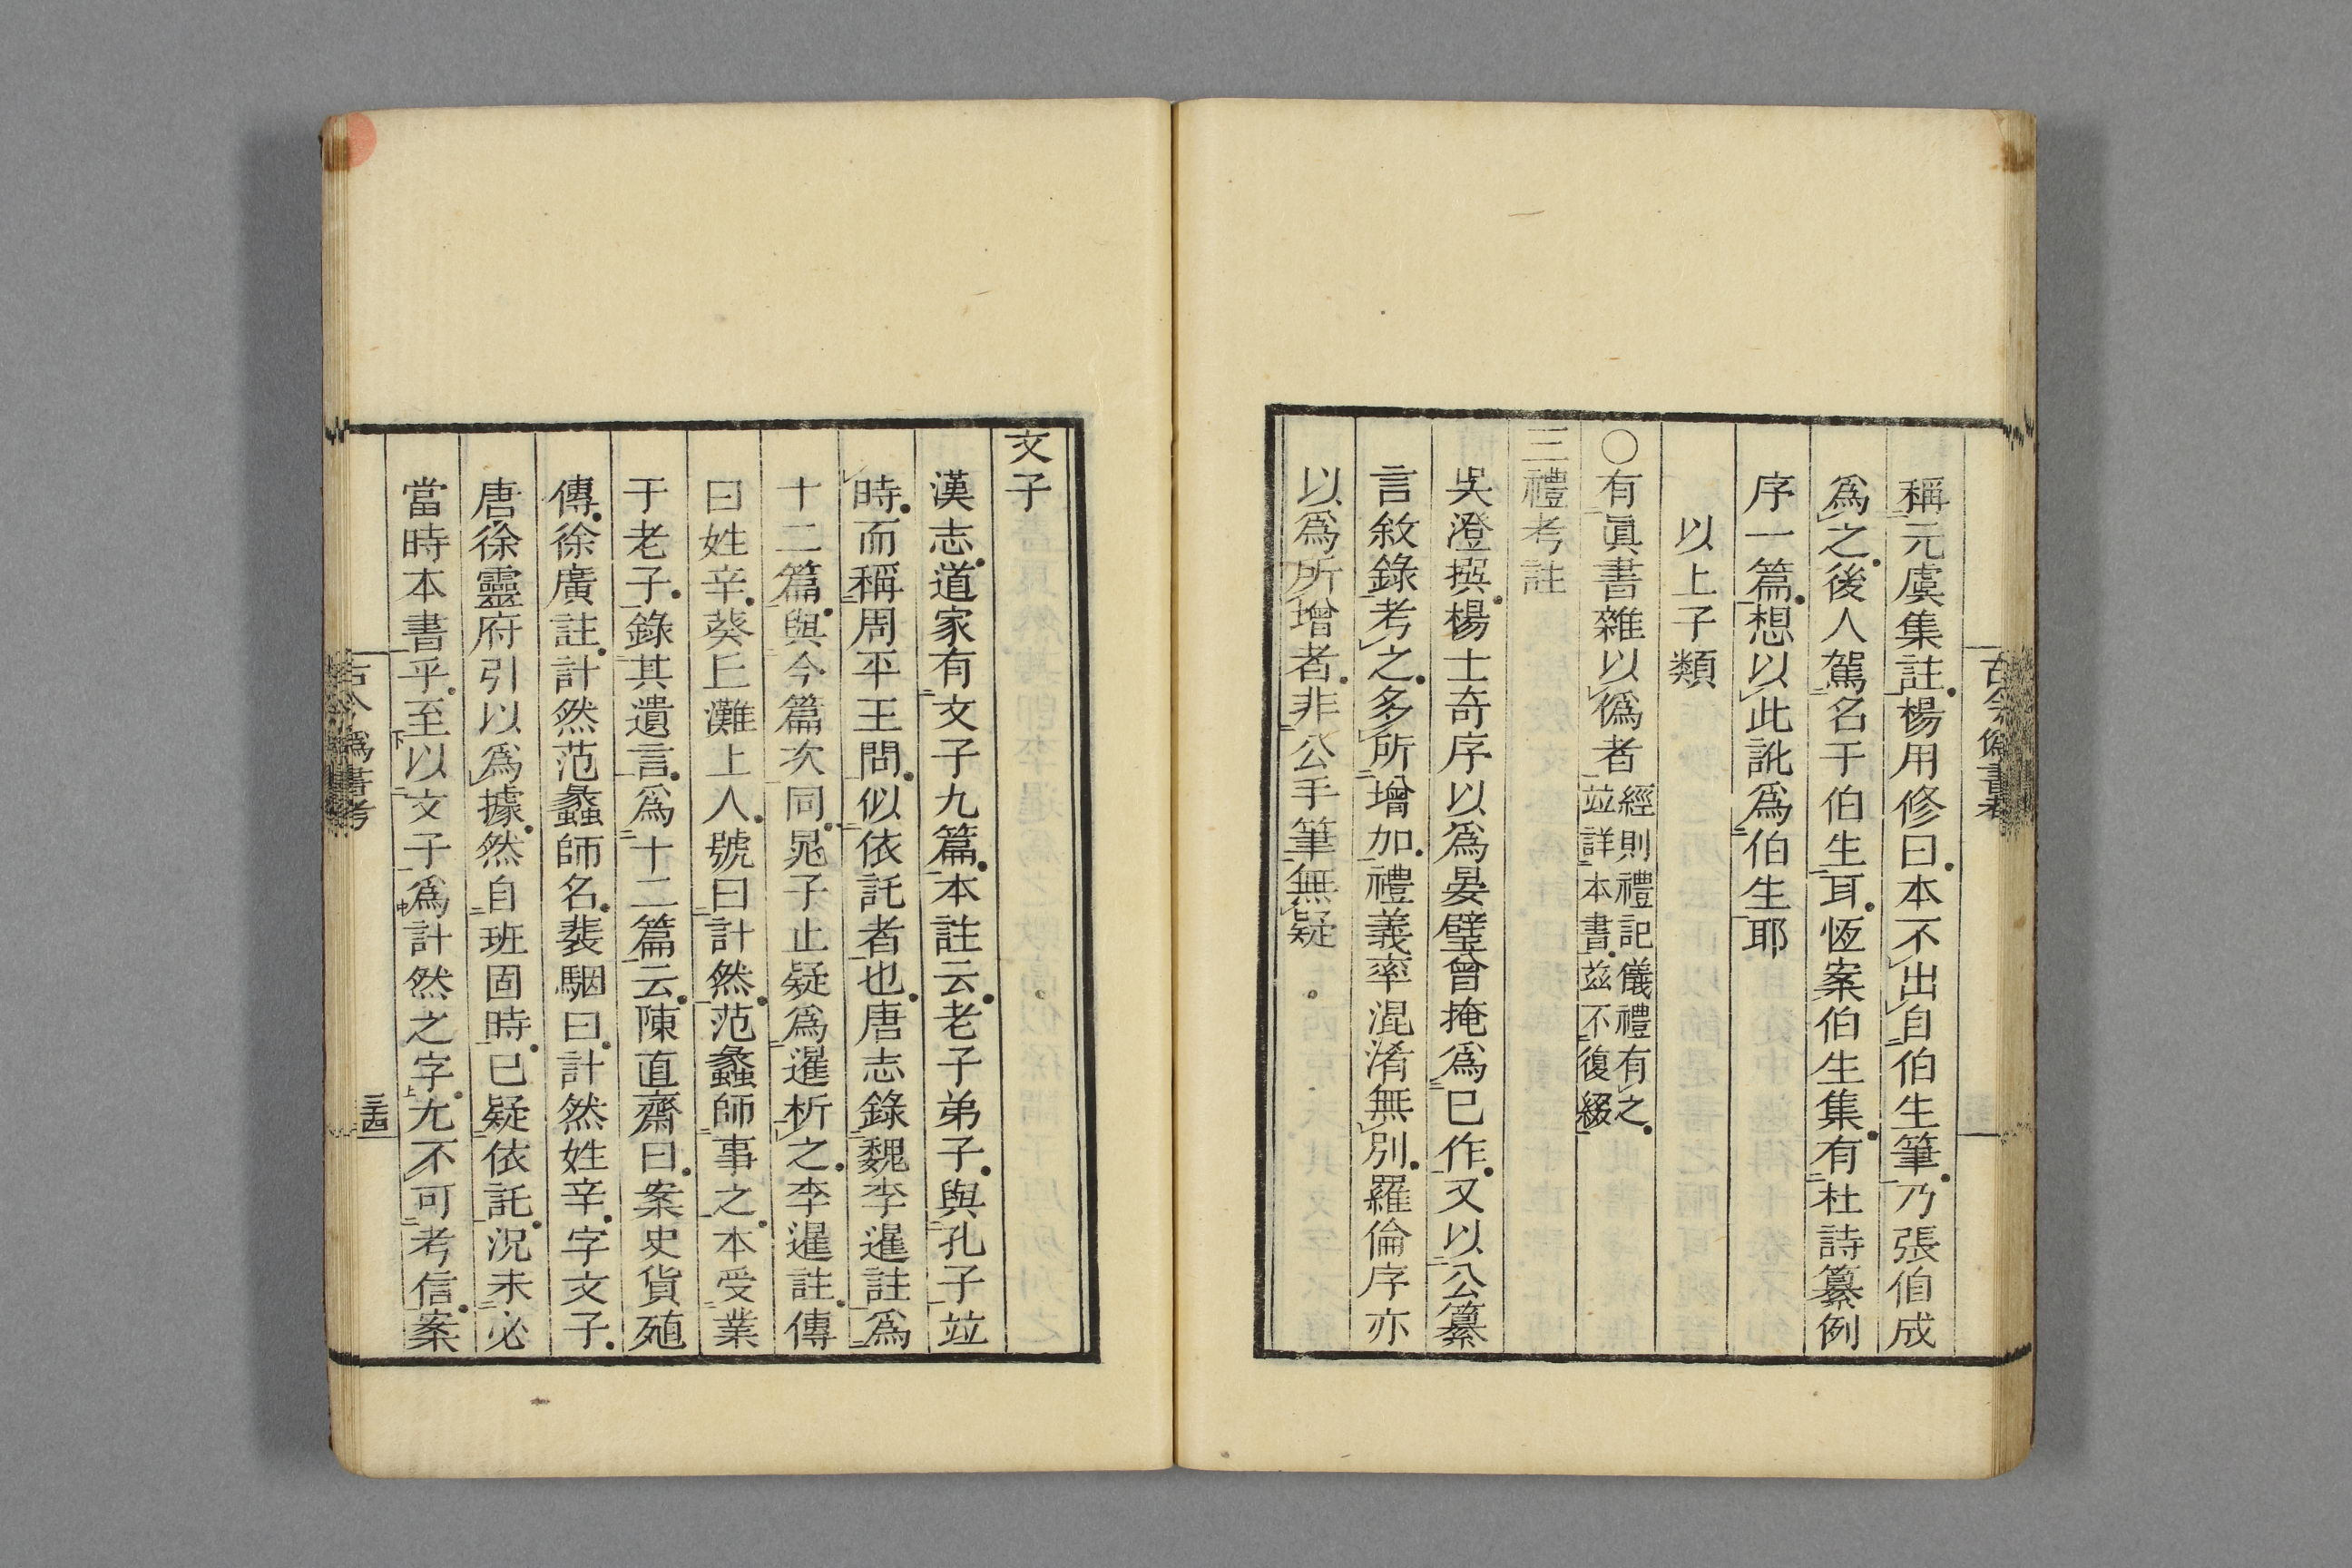 古今僞書考
稱元虞集註楊用修曰本不出自伯生筆乃張伯成
爲之後人駕名于伯生耳恆案伯生集有杜詩纂例
序一篇想以此訛爲伯生耶
以上子類
〇有眞書雜以僞者經則禮記儀禮有之
竝詳本書茲不復綴
三禮考註
吳澄撰楊士奇序以爲晏璧曾掩爲已作又以公纂
言敘錄考之多所增加禮義率混淆無別羅倫序亦
以爲所增者非公手筆無疑
文子
漢志道家有文子九篇本註云老子弟子與孔子竝
時而稱周平王問似依託者也唐志錄魏李暹註爲
十二篇與今篇次同晁子止疑爲暹析之李暹註傳
曰姓辛葵丘濮上人號曰計然范蠡師事之本受業
于老子錄其遺言爲十二篇云陳直齋曰案史貨殖
傳徐廣註計然范蠡師名裴駰曰計然姓辛字文子
唐徐靈府引以爲據然自班固時已疑依託況未必
當時本書乎至以文子爲計然之字尤不可考信案
古今僞書考
三四